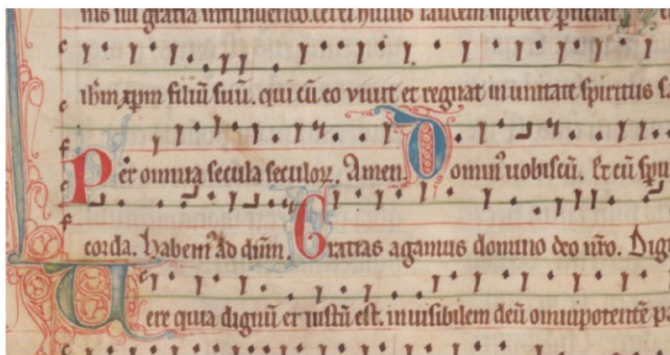 nis sui gratia infundendo. cerei huius laudem implere p̄ficiat.
ih̄m xp̄m filiū suū. qui cū eo viuit et regnat in unitate spiritus s
Per omnia secula seculoꝝ. Amen. Domin᷒ uobiscū. Et cū spiritu
corda. Habem᷒ ad dn̄m. Gratias agamus domino deo n̄ro. Dig
Vere quia dignū et iustū est. inuisibilem deū omnipotentē pa